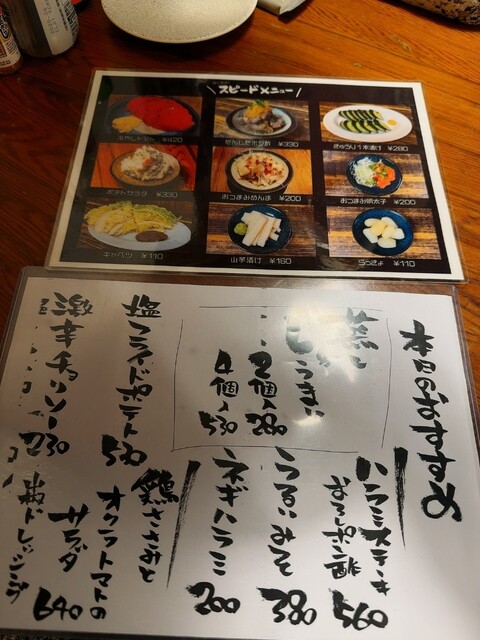 スピードメニュー
冷やしトマト ¥420
だんしだポン酢 ¥330
きゅうり1本漬け ¥280
ポテトサラダ ¥330
おつまみめんま ¥200
おつまみ明太子 ¥200
キャベツ ¥110
山芋漬け ¥160
らっきょ ¥110
本日のおすすめ
ハラミステーキ
おろしポン酢 560
うるいみそ 380
ネギハラミ 200
2個入 280
4個入 530
鶏ささみと
オクラトマトの
サラダ 640
ドレッシング
塩フライドポテト 530
激辛チョリソー 230